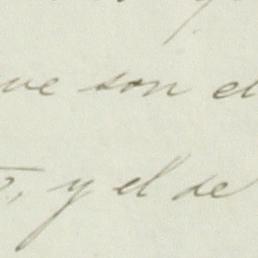 que son el
, y el de